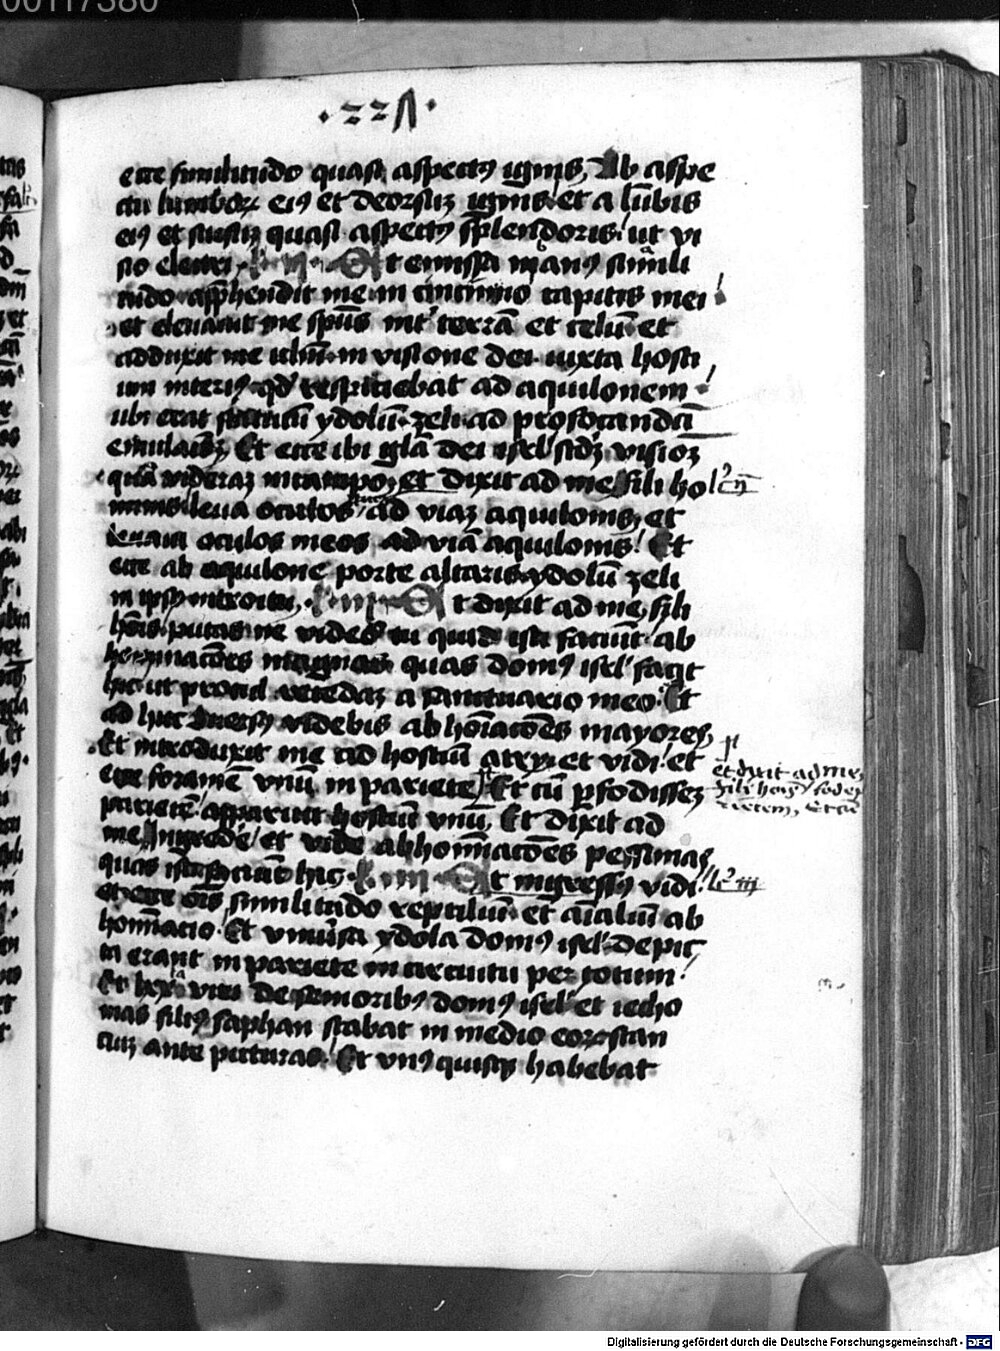 00117380
·227·
ecce similitudo quasi aspectus ignis, Ab aspe
ctu lumborum eius et deorsum ignis· et a lumbis
eius et sursum quasi aspectus splendoris· ut vi
sio electri· Et emissa manus simili
tudo apprehendit me in cincinno capitis mei
et elevavit me spiritus inter terram et celum· et
adduxit me iherusalem· in visione dei· iuxta hosti
um interius· quod respiciebat ad aquilonem·
ubi erat statutum ydolum· zeli· ad provocandam
emulationem, Et ecce ibi gloria dei israel secundum visionem
quam videram in campo, et dixit ad me, fili ho
minis leva oculos tuos ad viam aquilonis, et
levavi oculos meos ad viam aquilonis! Et
ecce ab aquilone porte altaris· ydolum zeli
in ipso introitu, Et dixit ad me, fili
hominis· putasne vides tu quid isti faciunt· ab
hominationes magnas quas domus israel facit
hic· ut procul recedam a sanctuario meo· Et
ad huc conversus videbis abhominationes mayores,
Et introduxit me ad hostium atrij· et vidi! et
ecce foramen unum in pariete, Et cum perfodissem
et dixit ad me,
fili hominis fode pa
rietem, Et cum
parietem· apparuit hostium unum, Et dixit ad
me, Ingredere et vide abhominationes pessimas
quas isti faciunt hic· Et ingressus vidi!
et ecce omnis similitudo reptilium· et animalium ab
hominatio· Et universa ydola domus israel· depic
ta erant in pariete in circuitu per totum!
Et lxx viri de senioribus domus israel· et iecho
nias filius saphan stabat in medio eorum stan
cium ante picturas! Et unusquisque habebat
Digitalisierung gefördert durch die Deutsche Forschungsgemeinschaft - DFG